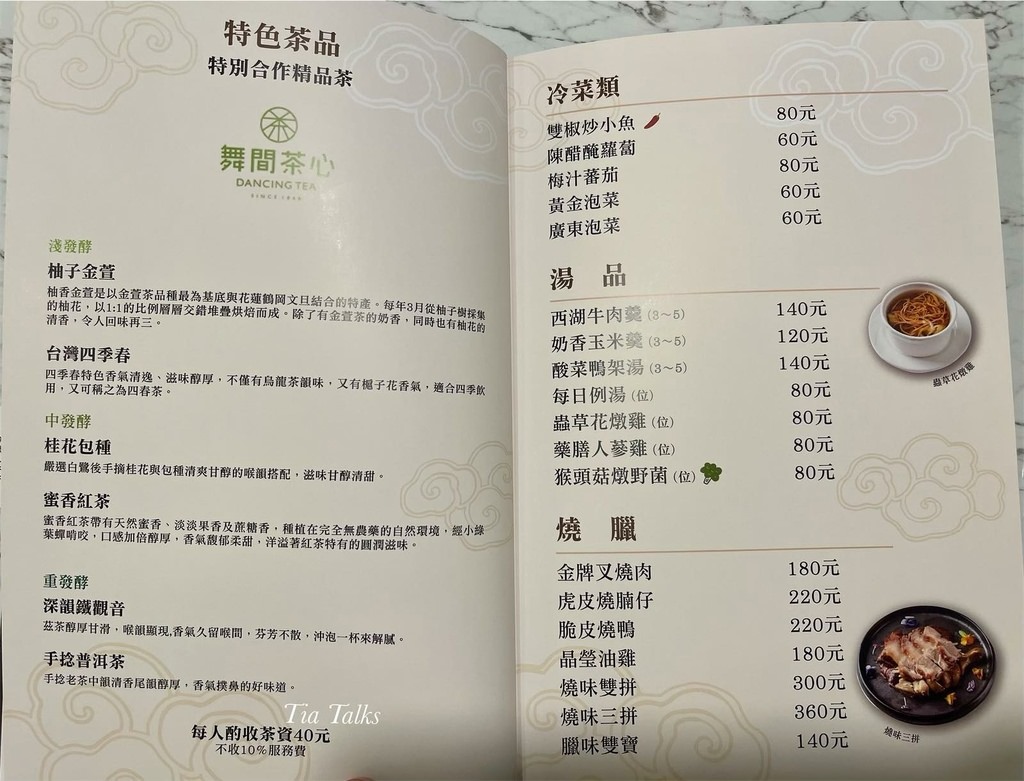 特色茶品
特別合作精品茶
舞間茶心
DANCING TEA
SINCE 1865
淺發酵
柚子金萱
柚香金萱是以金萱茶品種最為基底與花蓮鶴岡文旦結合的特產。每年3月從柚子樹採集
的柚花，以1:1的比例層層交錯堆疊烘焙而成。除了有金萱茶的奶香，同時也有柚花的
清香，令人回味再三。
台灣四季春
四季春特色香氣清逸、滋味醇厚，不僅有烏龍茶韻味，又有梔子花香氣，適合四季飲
用，又可稱之為四春茶。
中發酵
桂花包種
嚴選白鷺後手摘桂花與包種清爽甘醇的喉韻搭配，滋味甘醇清甜。
蜜香紅茶
蜜香紅茶帶有天然蜜香、淡淡果香及蔗糖香，種植在完全無農藥的自然環境，經小綠
葉蟬啃咬，口感加倍醇厚，香氣馥郁柔甜，洋溢著紅茶特有的圓潤滋味。
重發酵
深韻鐵觀音
茲茶醇厚甘滑，喉韻顯現,香氣久留喉間，芬芳不散，沖泡一杯來解膩。
手捻普洱茶
手捻老茶中韻清香尾韻醇厚，香氣撲鼻的好味道。
Tia Talks
每人酌收茶資40元
不收10%服務費
冷菜類
雙椒炒小魚 80元
陳醋醃蘿蔔 60元
梅汁蕃茄 80元
黃金泡菜 60元
廣東泡菜 60元
湯 品
西湖牛肉羹 (3～5) 140元
奶香玉米羹 (3～5) 120元
酸菜鴨架湯 (3～5) 140元
每日例湯 (位) 80元
蟲草花燉雞 (位) 80元
藥膳人蔘雞 (位) 80元
猴頭菇燉野菌 (位) 80元
蟲草花燉雞
燒 臘
金牌叉燒肉 180元
虎皮燒腩仔 220元
脆皮燒鴨 220元
晶瑩油雞 180元
燒味雙拼 300元
燒味三拼 360元
臘味雙寶 140元
燒味三拼